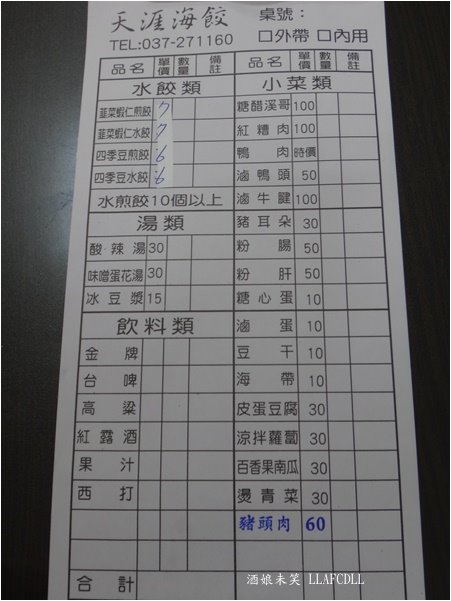 天涯海餃 桌號：
TEL:037-271160 口外帶 口內用
品名 單價 數量 備註 品名 單價 數量 備註
水餃類
韭菜蝦仁煎餃 7
韭菜蝦仁水餃 7
四季豆煎餃 6
四季豆水餃 6
水煎餃10個以上
湯類
酸辣湯 30
味噌蛋花湯 30
冰豆漿 15
飲料類
金牌
台啤
高粱
紅露酒
果汁
西打
合計
小菜類
糖醋溪哥 100
紅糟肉 100
鴨肉 時價
滷鴨頭 50
滷牛腱 100
豬耳朵 30
粉腸 50
粉肝 50
糖心蛋 10
滷蛋 10
豆干 10
海帶 10
皮蛋豆腐 30
涼拌蘿蔔 30
百香果南瓜 30
燙青菜 30
豬頭肉 60
酒娘未笑 LLAFCDLL